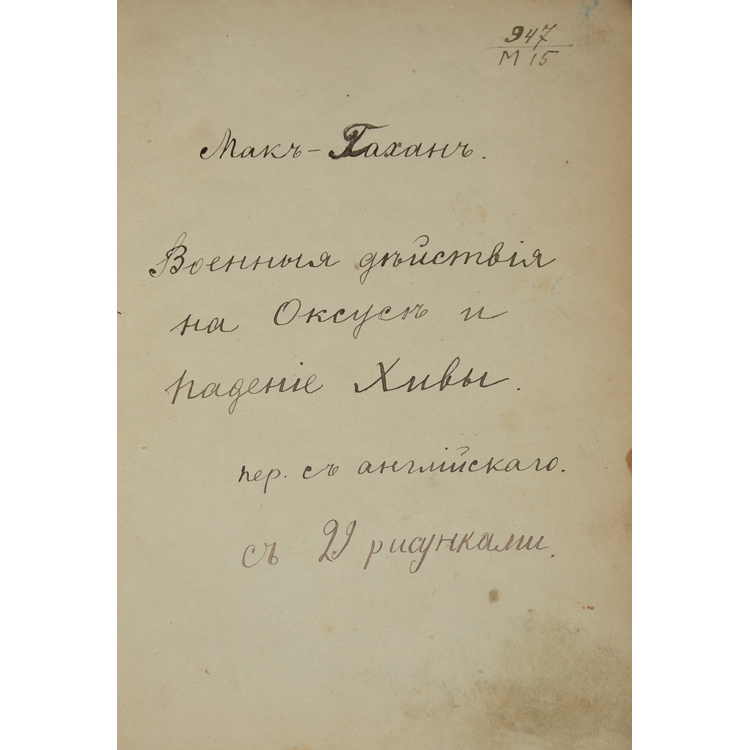 947
М 15
Макъ-Гаханъ.
Военныя дѣйствія
на Оксусѣ и
паденіе Хивы.
пер. съ англійскаго.
съ 21 рисунками.